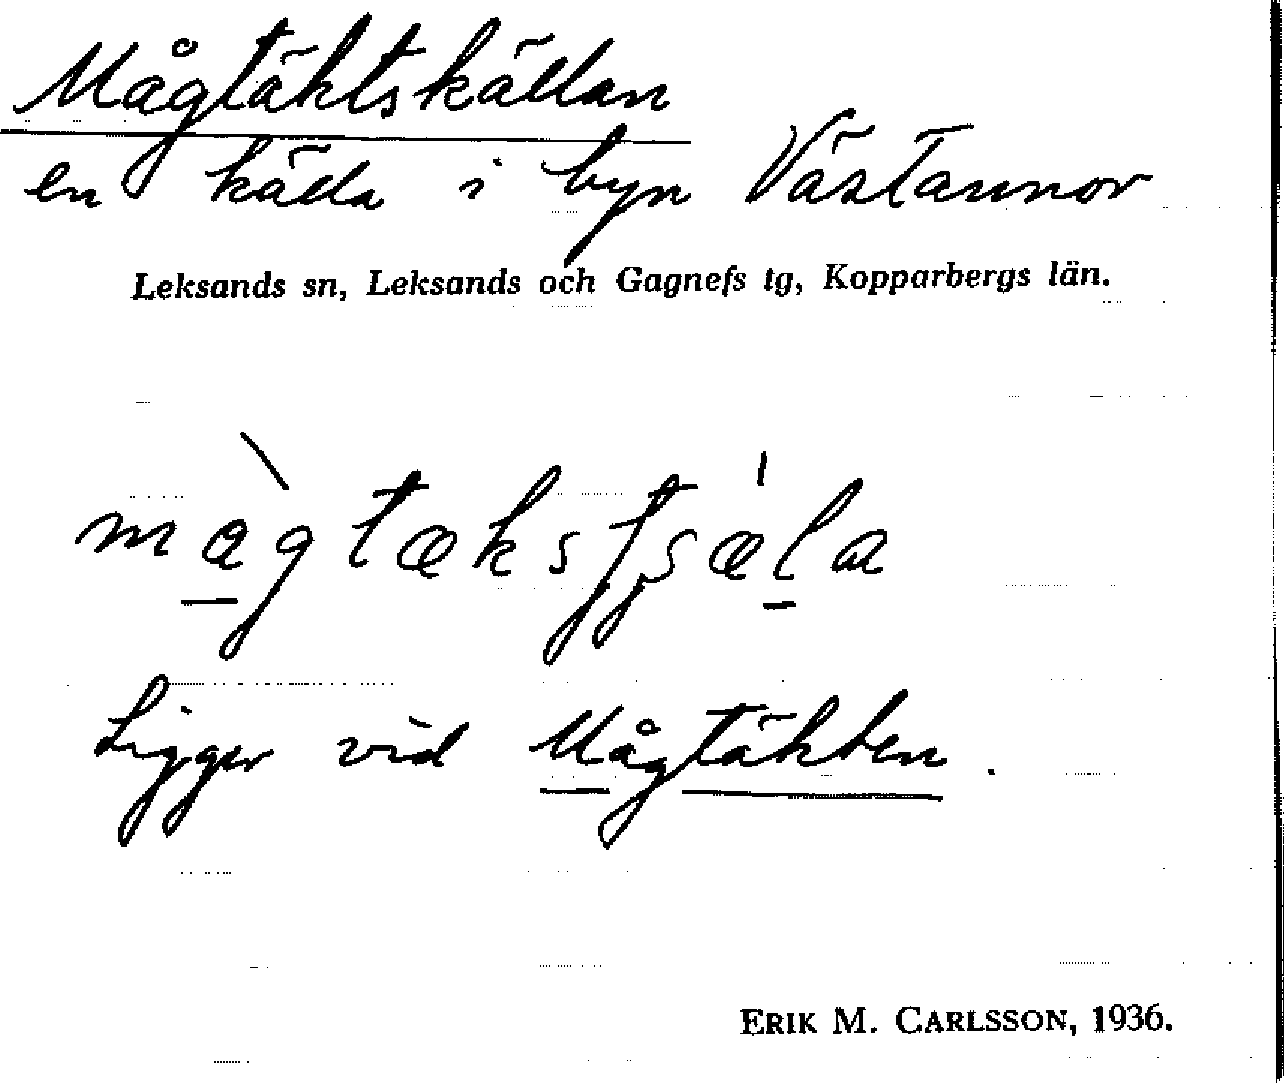 Mågtäktskällan
en källa i byn Västannor
Leksands sn, Leksands och Gagnefs tg, Kopparbergs län.
Ligger vid Mågtäkten.
ERIK M. CARLSSON, 1936.